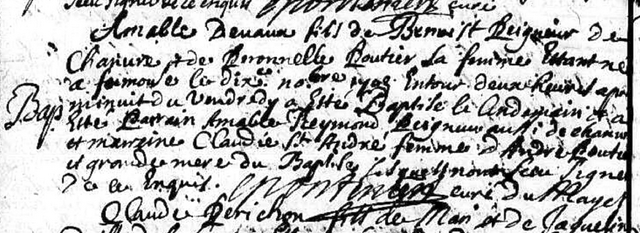 Amable Devaux fils de Benoist Peigneur de
Chanvre et de Peronnelle Poutier sa femme Estant né
a femouse le dixe nobre 1708 Entour deux heures apres
Bap minuit du Vendredy a Esté Baptisé le lendemain et a
Esté Parrain Amable Reymond Peigneur aussi de chanvre
et marraine Claudie St André femme d'André Poutier
et grandmere du Baptisé lesquels n'ont sceu signer
de ce Enquis. curé du
Claude Perichon fils de et de Jaqueline